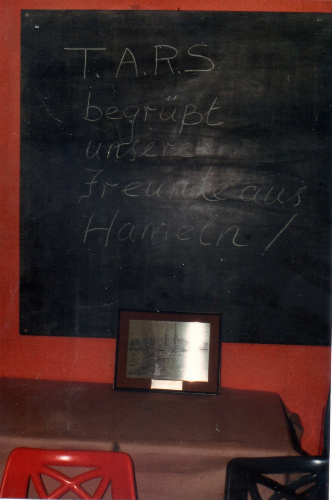 T.A.R.S.
begrüßt
unsere
Freunde aus
Hameln!